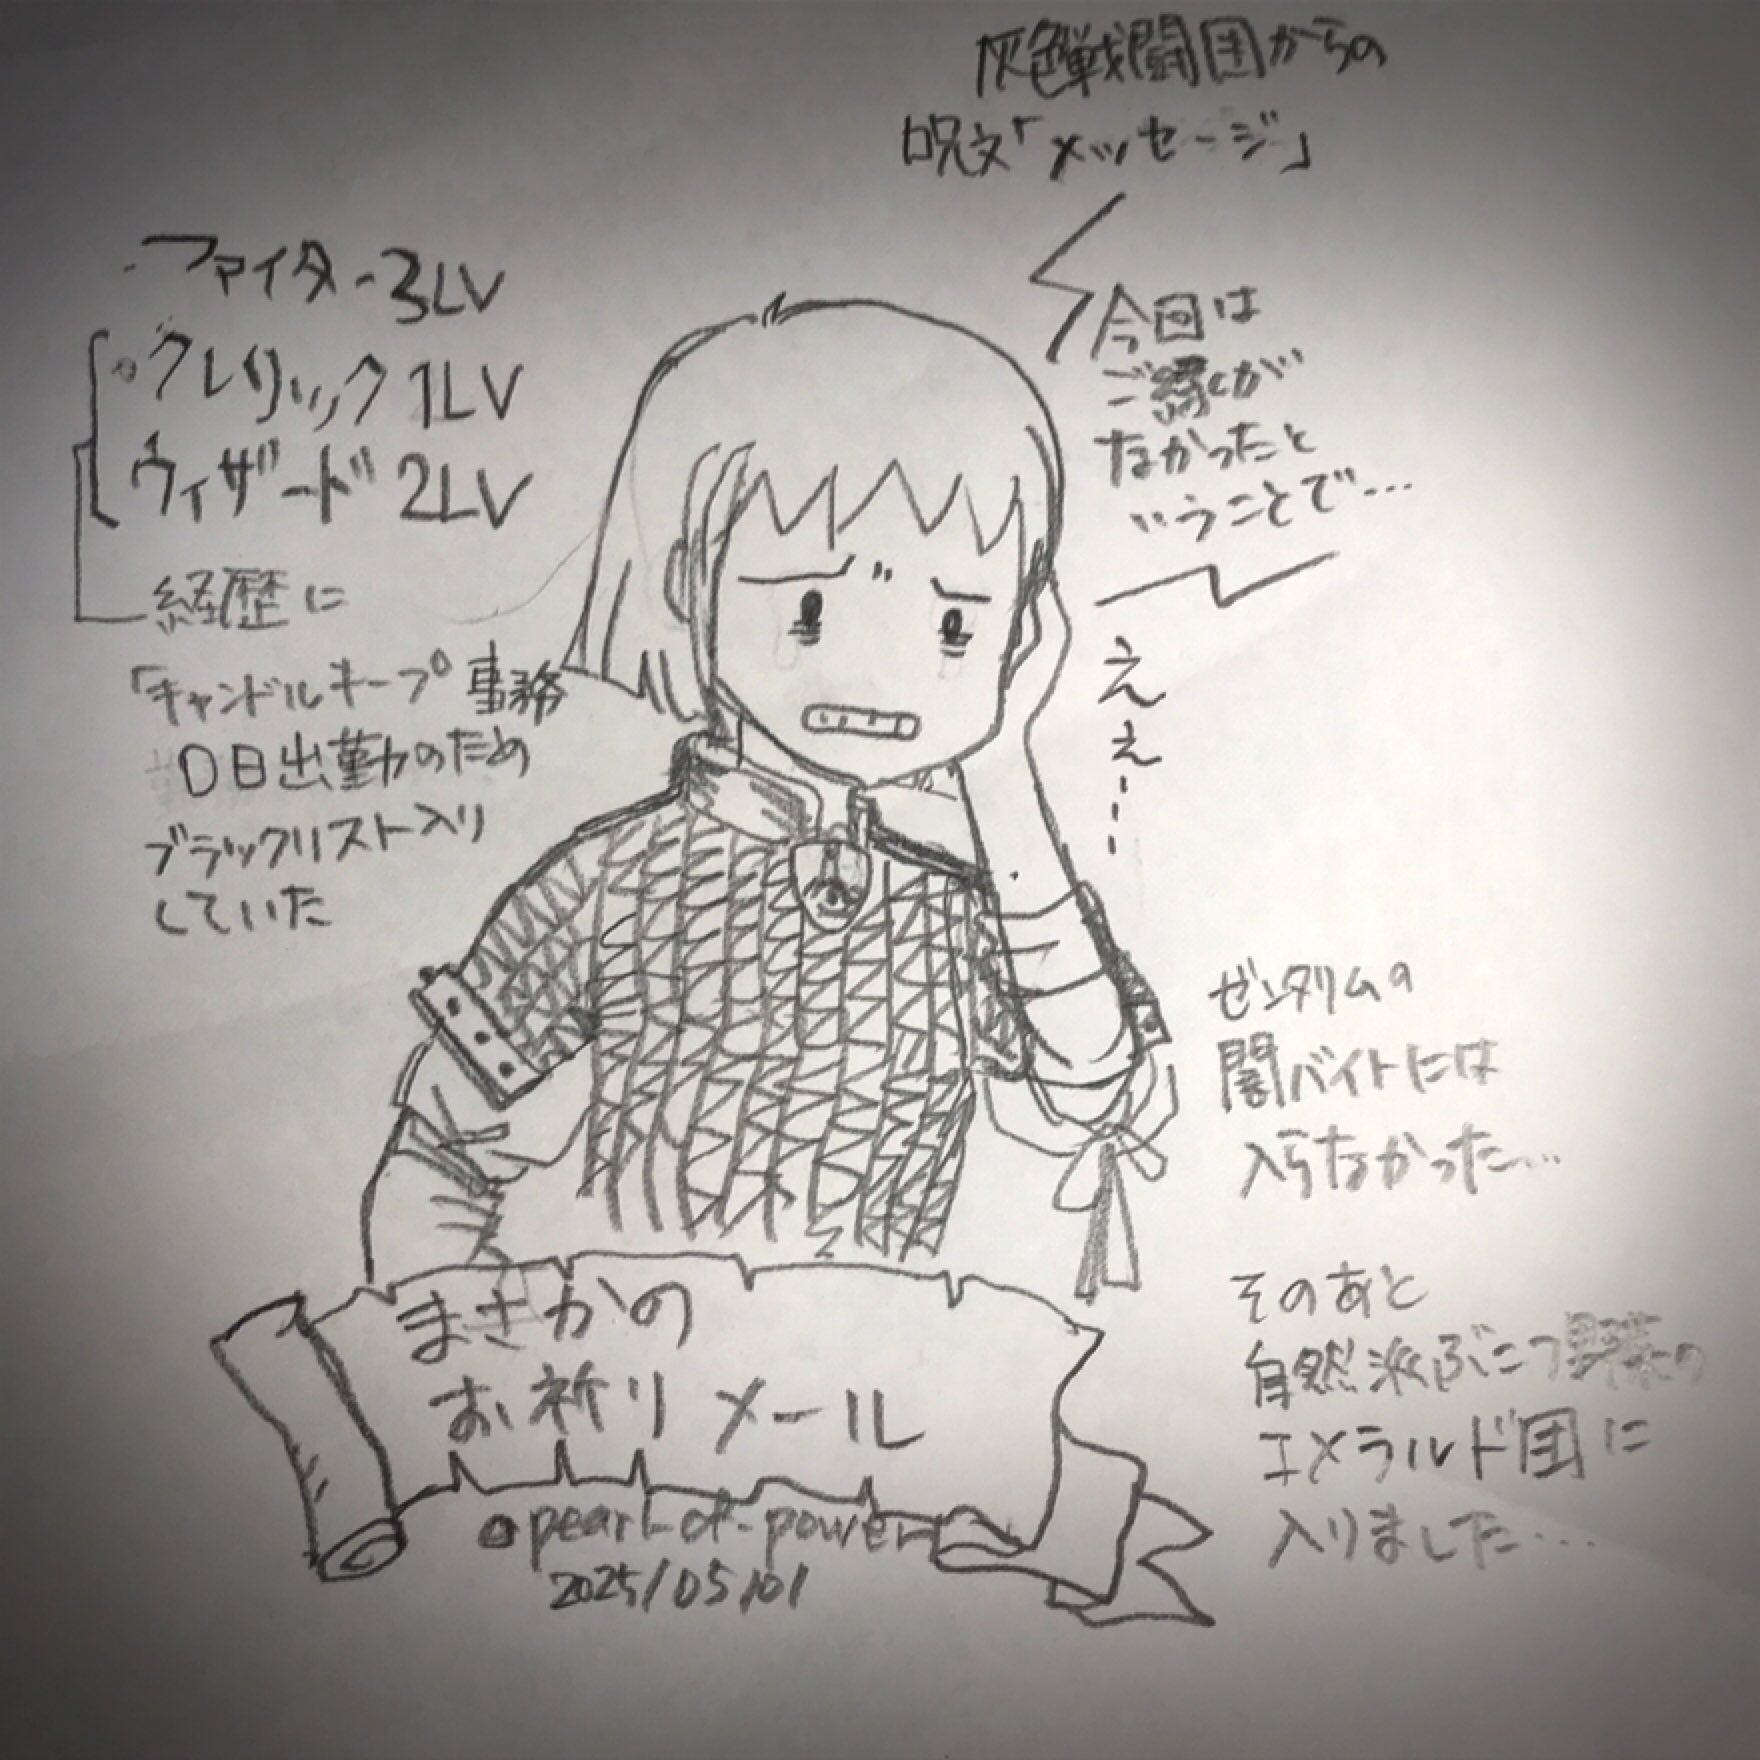 灰色戦闘団からの
呪文「メッセージ」
今回は
ご縁が
なかったと
いうことで…
ええーー
ファイター3LV
クレリック1LV
ウィザード2LV
経歴に
「キャンドルキープ事務
0日出勤のため
ブラックリスト入り
していた
ゼンタリムの
闇バイトには
入らなかった…
そのあと
自然派ぶこつ野菜の
エメラルド団に
入りました…
まさかの
お祈りメール
@pearl-of-power
2025/05/01